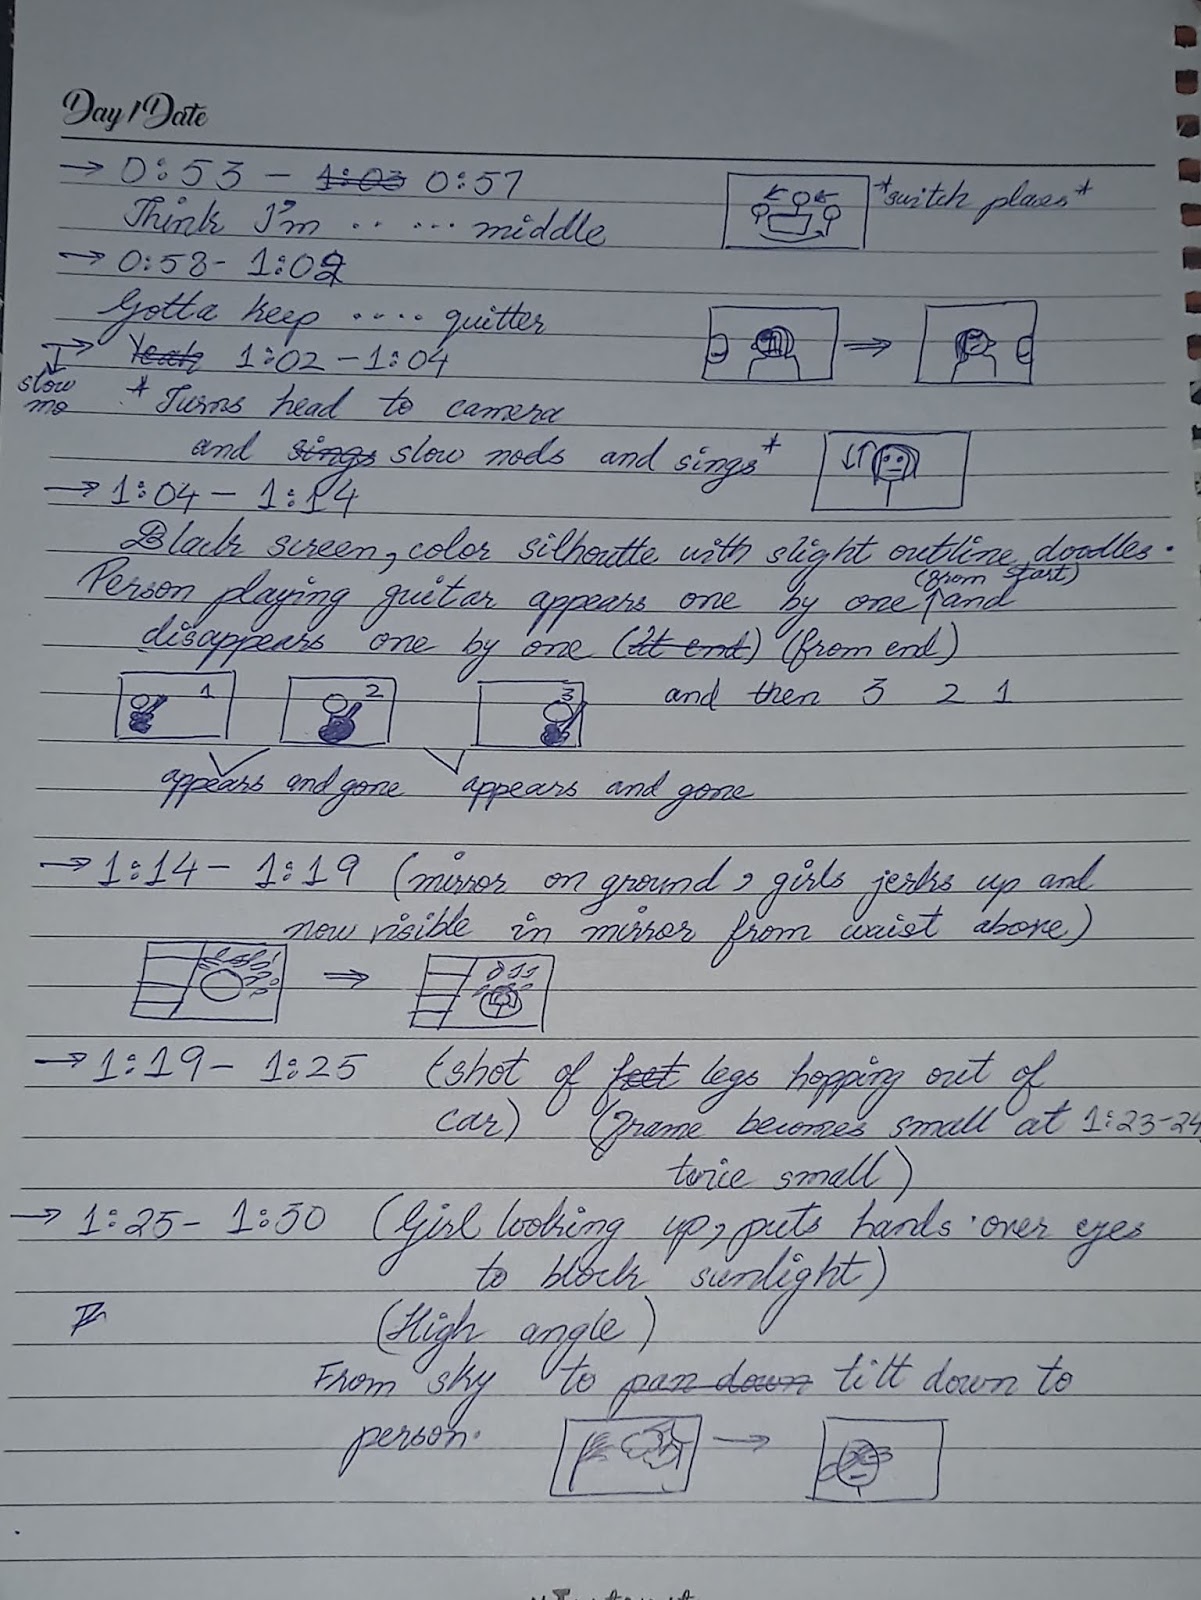 Day / Date
→ 0:53 – 1:03 0:57
Think I'm .. .. ... middle
*switch places*
→ 0:58 - 1:02
Gotta keep .... quitter
→ Yeah 1:02 – 1:04
slow
mo
* Turns head to camera
and sings slow nods and sings*
→ 1:04 – 1:14
Black screen, color silhoutte with slight outline doodles.
(from start)
Person playing guitar appears one by one ↑ and
disappears one by one (At end) (from end)
1 2 3 and then 3 2 1
appears and gone appears and gone
→ 1:14 – 1:19 (mirror on ground, girls jerks up and
now visible in mirror from waist above)
→ 1:19 – 1:25 (shot of feet legs hopping out of
car) (Frame becomes small at 1:23-24
twice small)
→ 1:25 – 1:30 (Girl looking up, puts hands over eyes
to block sunlight)
(High angle)
From sky to pan down tilt down to
person.